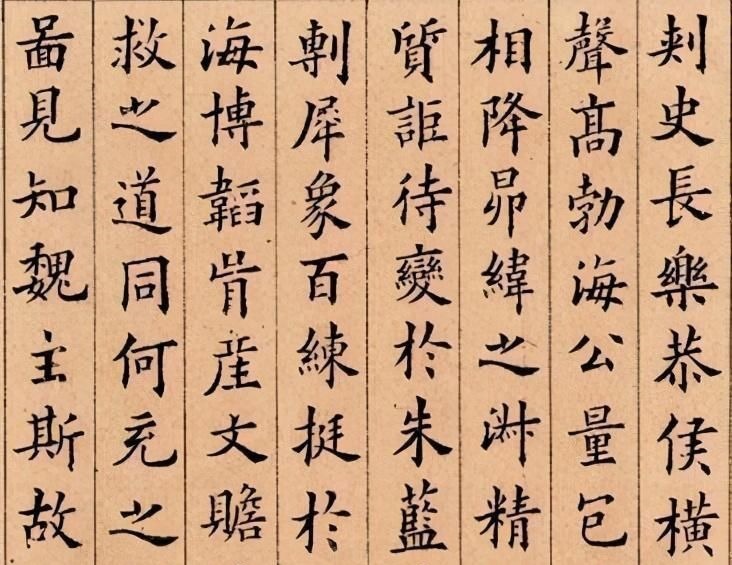 刾史長樂恭侯橫
聲髙勃海公量包
相降昴緯之淑精
質詎待變於朱藍
剸犀象百練挺於
海博韜胥産文贍
救之道同何充之
啚見知魏主斯故